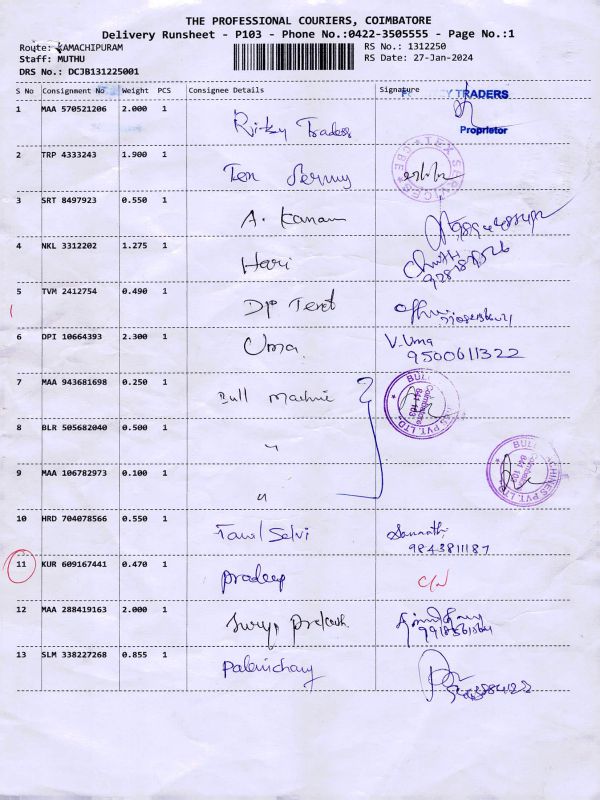 THE PROFESSIONAL COURIERS, COIMBATORE
Delivery Runsheet - P103 - Phone No.:0422-3505555 - Page No.:1
Route: KAMACHIPURAM
RS No.: 1312250
Staff: MUTHU
RS Date: 27-Jan-2024
DRS No.: DCJB131225001
S No Consignment No Weight PCS Consignee Details Signature
TRADERS
1 MAA 570521206 2.000 1 Ricky Traders
Proprietor
2 TRP 4333243 1.900 1
TEX SERVICES CBE
3 SRT 8497923 0.550 1 A. Kanam
4 NKL 3312202 1.275 1 Hari
5 TVM 2412754 0.490 1 DP Teret
6 DPI 10664393 2.300 1 Uma. V. Uma
9500611322
7 MAA 943681698 0.250 1 Bull Machine
BULL
Coimbatore
641 103
PVT. LTD.
8 BLR 505682040 0.500 1 "
9 MAA 106782973 0.100 1 "
CHINES PVT. LTD.
Coimbatore
641 103
10 HRD 704078566 0.550 1 Tamil Selvi
9843811187
11 KUR 609167441 0.470 1 pradeep
12 MAA 288419163 2.000 1 Surya prakash
13 SLM 338227268 0.855 1 Palanichamy